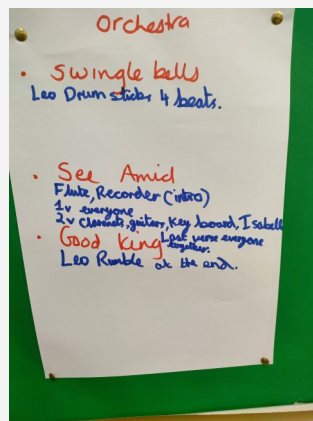 Orchestra
• Swingle bells
Leo Drum sticks 4 beats.
• See Amid
Flute, Recorder (intro)
1v everyone
2v clarinets, guitars, Key board, Isabell
• Good King Last verse everyone together.
Leo Rumble at the end.